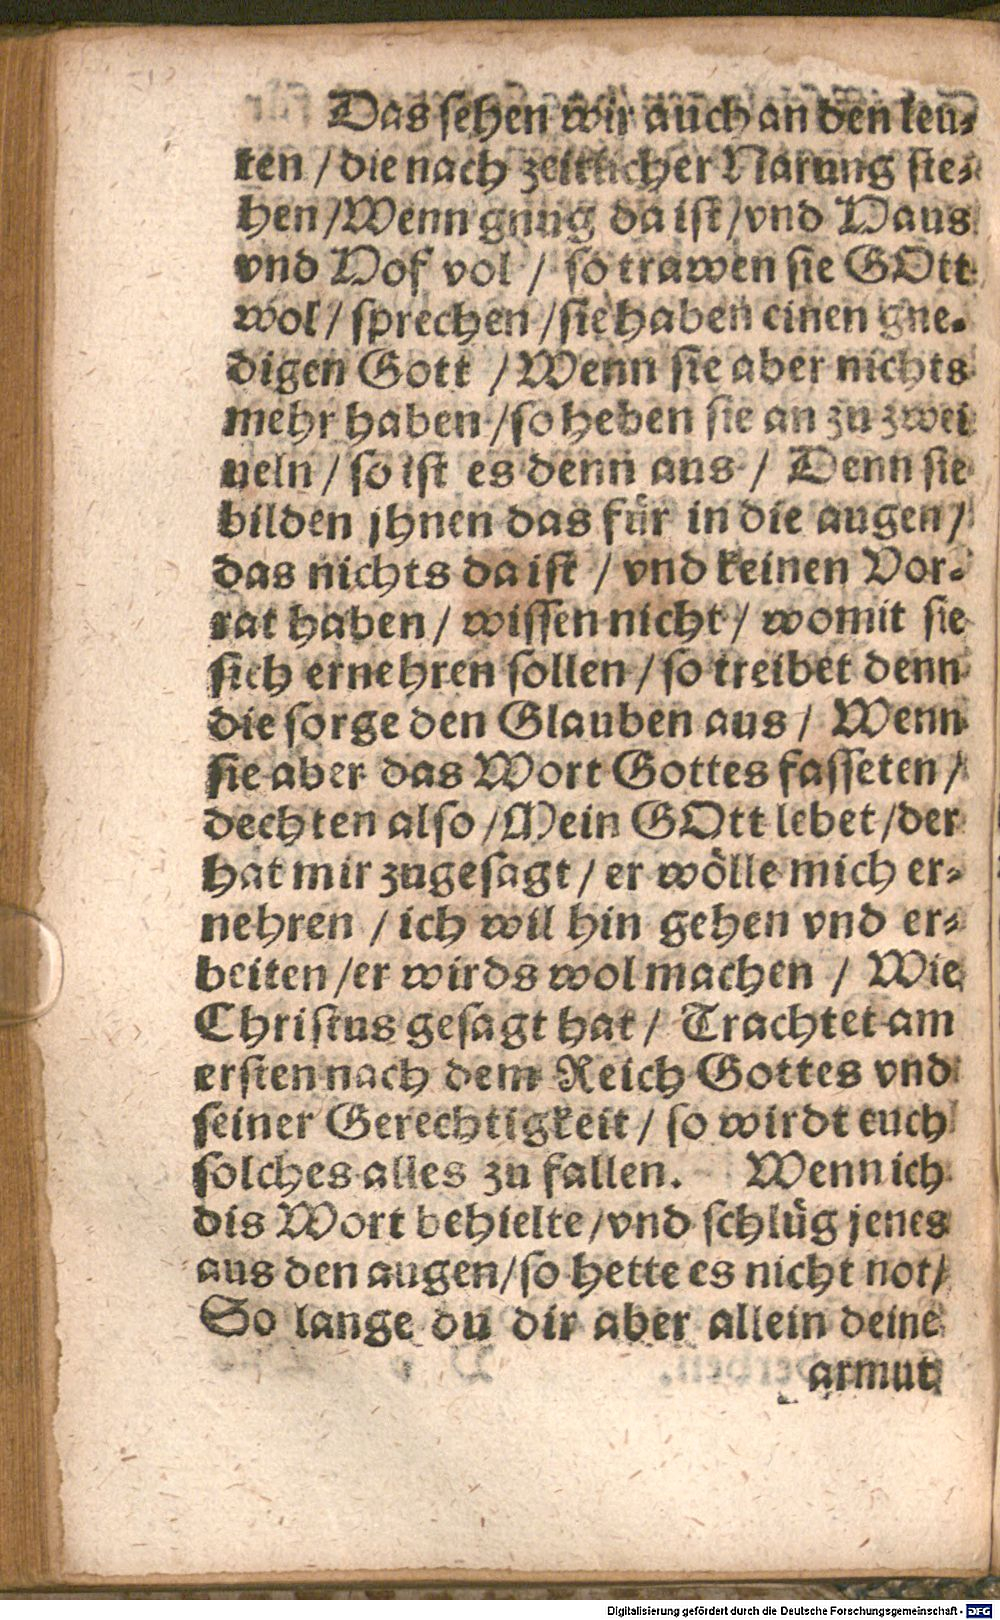 Das sehen wir auch an den leu-
ten / die nach zeitlicher Narung ste-
hen / Wenn gnug da ist / vnd Haus
vnd Hof vol / so trawen sie GOtt
wol / sprechen / sie haben einen gne-
digen Gott / Wenn sie aber nichts
mehr haben / so heben sie an zu zwei
ueln / so ist es denn aus / Denn sie
bilden jhnen das für in die augen /
das nichts da ist / vnd keinen Vor-
rat haben / wissen nicht / womit sie
sich ernehren sollen / so treibet denn
die sorge den Glauben aus / Wenn
sie aber das Wort Gottes fasseten /
dechten also / Mein GOtt lebet / der
hat mir zugesagt / er wölle mich er-
nehren / ich wil hin gehen vnd er-
beiten / er wirds wol machen / Wie
Christus gesagt hat / Trachtet am
ersten nach dem Reich Gottes vnd
seiner Gerechtigkeit / so wirdt euch
solches alles zu fallen. Wenn ich
dis Wort behielte / vnd schlüg jenes
aus den augen / so hette es nicht not /
So lange du dir aber allein deine
armut
Digitalisierung gefördert durch die Deutsche Forschungsgemeinschaft - DFG